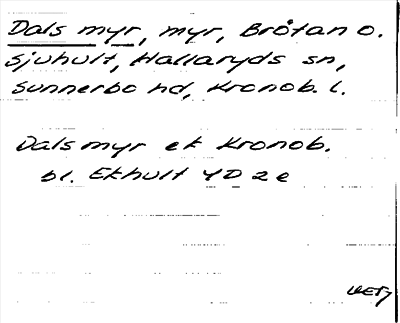 Dals myr, myr, Bråtan o.
Sjuhult, Hallaryds sn,
Sunnerbo hd, Kronob. l.
Dalsmyr ek Kronob.
bl. Ekhult 4D 2e